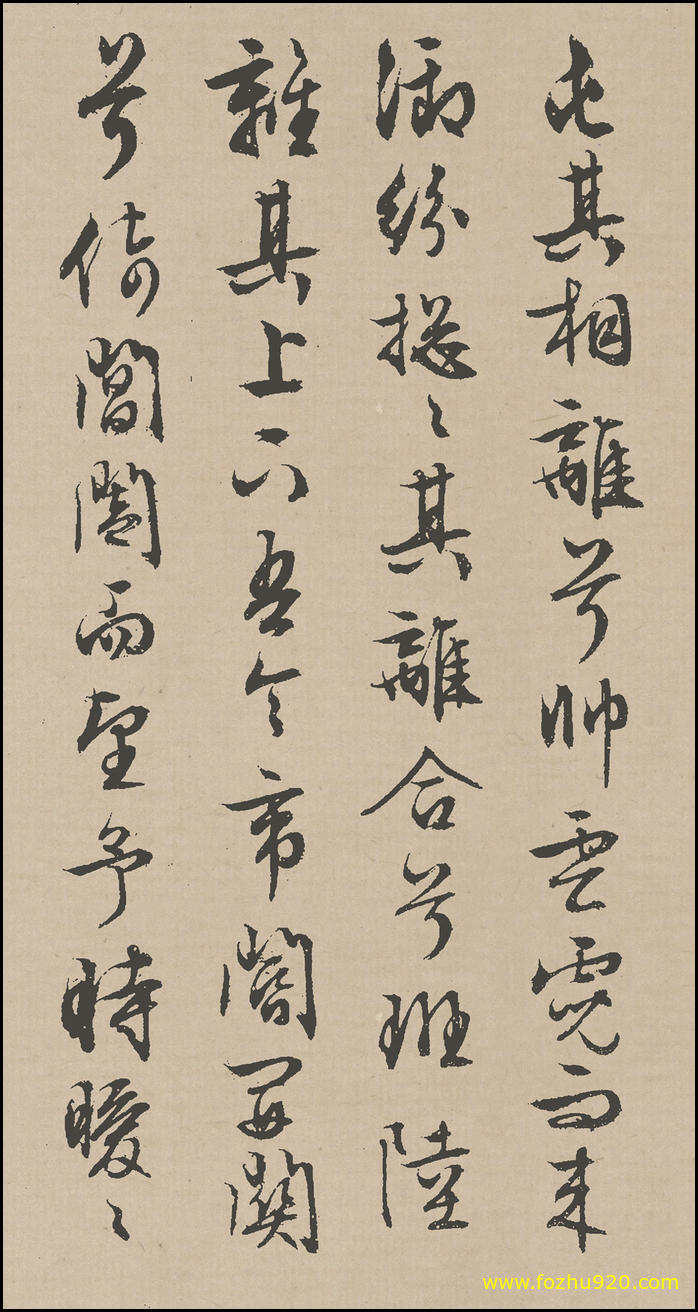 屯其相離兮帥雲霓而來
御紛揔々其離合兮班陸
離其上下吾令帝閽開關
兮倚閶闔而望予時曖々
www.fozhu920.com